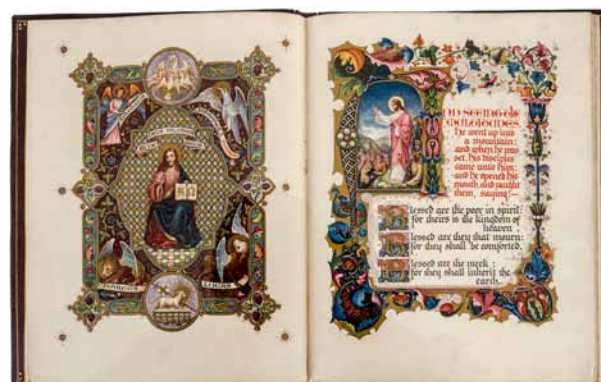 AND SEEING THE
MULTITUDES
he went up into
a mountain:
and when he was
set, his disciples
came unto him:
and he opened his
mouth, and taught
them, saying:—
Blessed are the poor in spirit:
for theirs is the kingdom of
heaven
Blessed are they that mourn:
for they shall be comforted.
Blessed are the meek:
for they shall inherit the
earth.